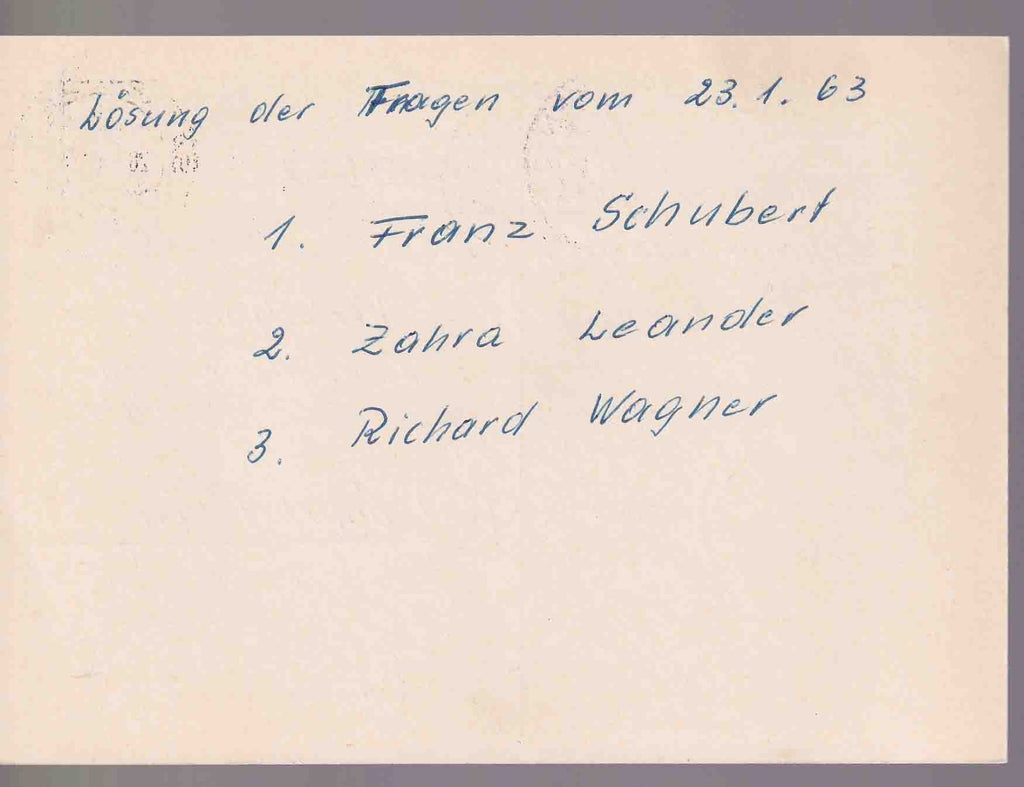 Lösung der Fragen vom 23.1.63
1. Franz Schubert
2. Zahra Leander
3. Richard Wagner